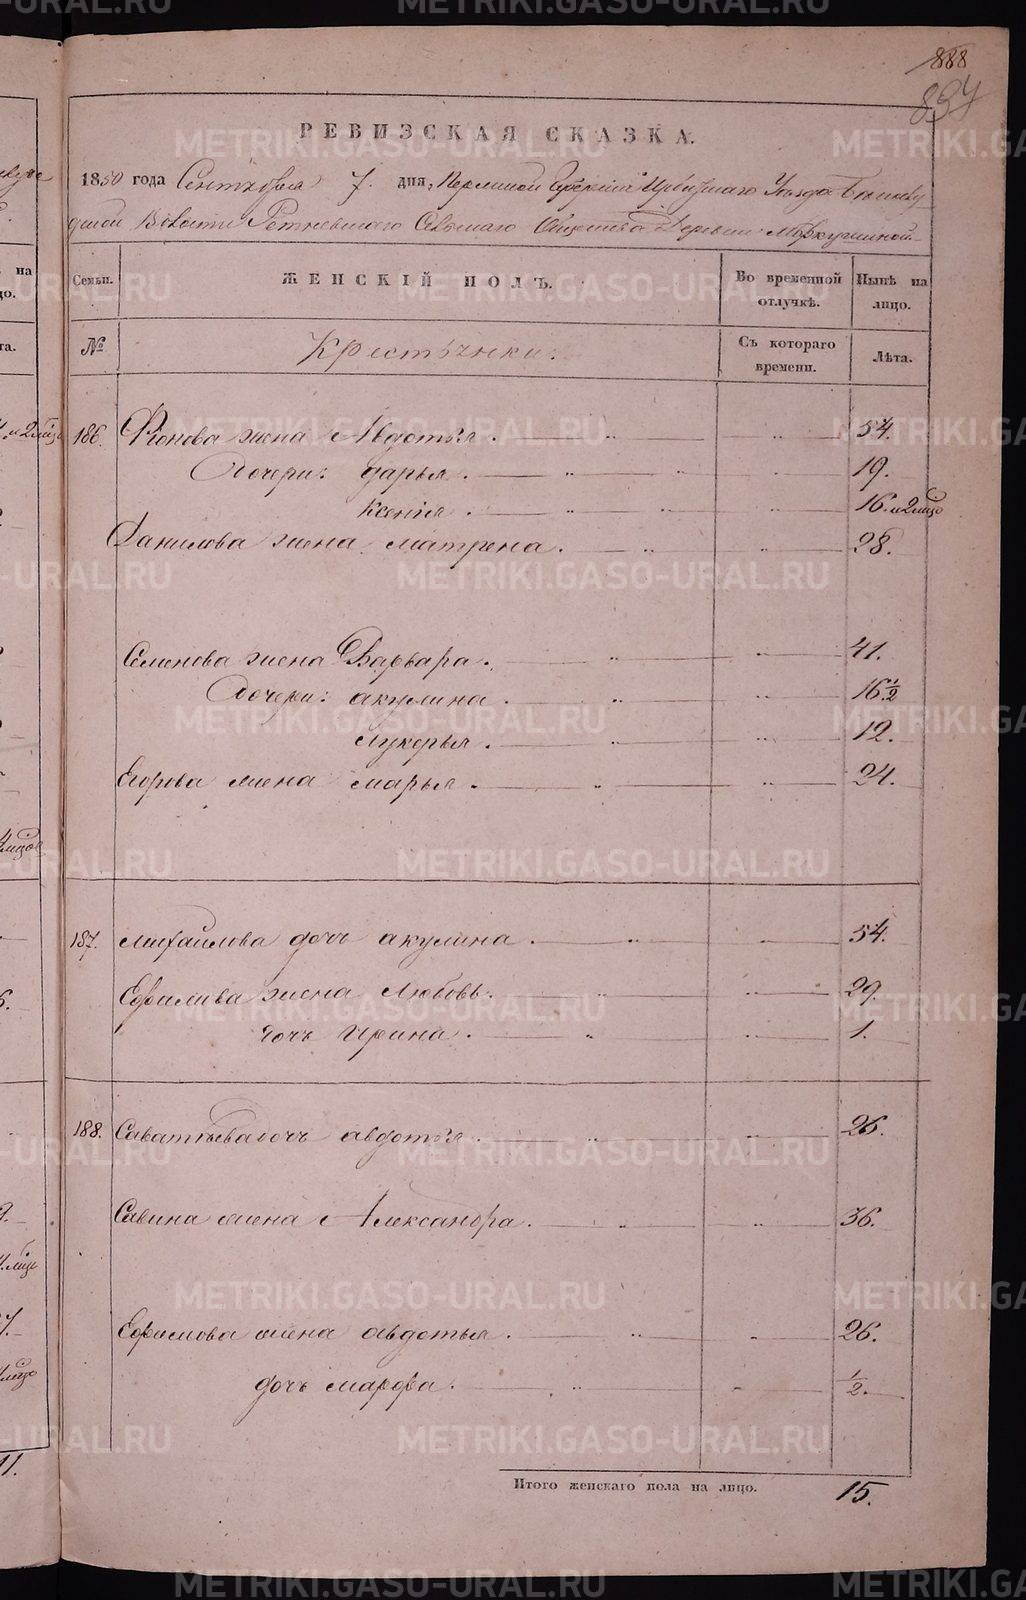 888
894
РЕВИЗСКАЯ СКАЗКА.
1850 года Сентября 7. дня, Пермской Губернiи Ирбитскаго Уезда
Волости Сельскаго Общества Деревни Меркушиной
Семьи. ЖЕНСКIЙ ПОЛЪ. Во временной отлучкѣ. Нынѣ на лицо.
№ Крестьянки. Съ котораго времени. Лѣта.
186. жена Авдотья. 54.
Дочери: дарья. 19.
Ксенiя. 16.
Данилова жена матрена. 28.
Семенова жена Варвара. 41.
Дочери: акулина. 16 1/2
лукерья. 12.
Егорова жена марья. 24.
187. михайлова дочь акулина. 54.
Ефимова жена Любовь. 29.
дочь ирина. 1.
188. Саватѣева дочь авдотья. 26.
Савина жена Александра. 36.
Ефимова жена авдотья. 26.
дочь марфа. 1/2.
Итого женскаго пола на лицо. 15.
METRIKI.GASO-URAL.RU